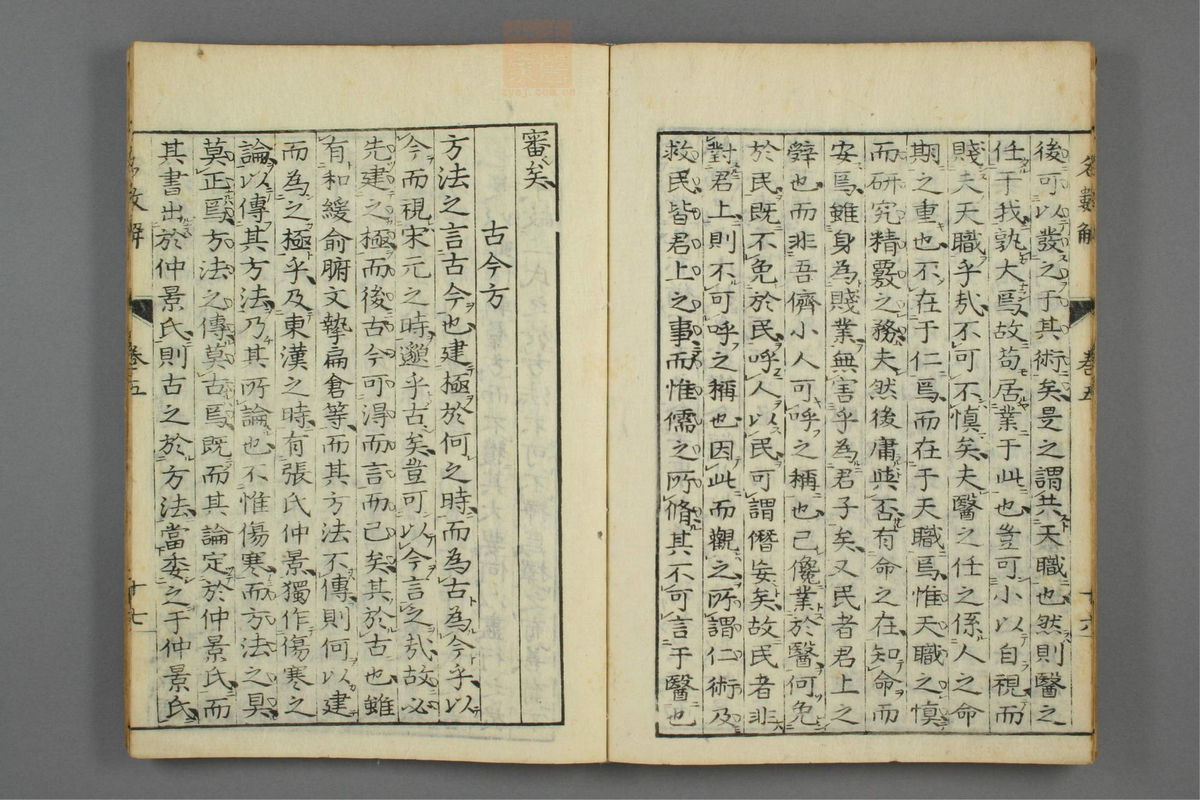 後可以發之于其術矣是之謂共天職也然則醫之
任于我孰大焉故苟居業于此也豈可小以自視而
賤夫天職乎哉不可不愼矣夫醫之任之係人之命
期之重也不在于仁焉而在于天職焉惟天職之愼
而研究精覈之務夫然後庸與否有命之在知命而
安焉雖身為賤業無害乎為君子矣又民者君上之
辭也而非吾儕小人可呼之稱也已儳業於醫何免
於民既不免於民呼人以民可謂僭妄矣故民者非
對君上則不可呼之稱也因此而觀之所謂仁術及
救民皆君上之事而惟儒之所脩其不可言于醫也
名數解 卷五 十六
審矣
古今方
方法之言古今也建極於何之時而為古為今乎以
今而視宋元之時邈乎古矣豈可以今言之哉故必
先建之極而後古今可得而言而已矣其於古也雖
有和緩俞腑文摯扁倉等而其方法不傳則何以建
而為之極乎及東漢之時有張氏仲景獨作傷寒之
論以傳其方法乃其所論也不惟傷寒而方法之具
莫正焉方法之傳莫古焉既而其論定於仲景氏而
其書出於仲景氏則古之於方法當委之于仲景氏
名數解 卷五 十七